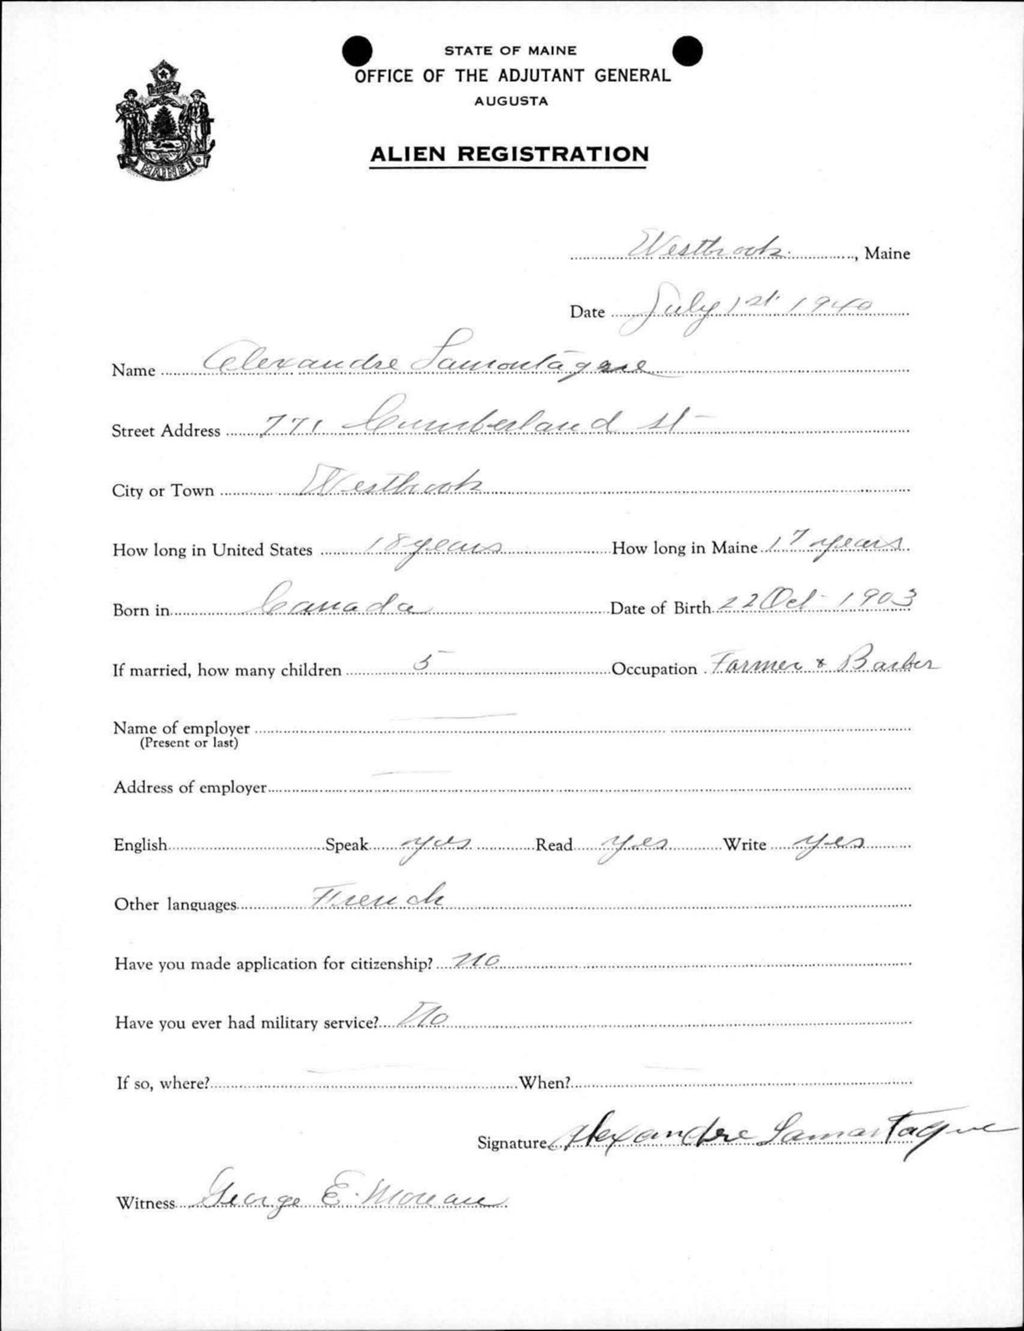 STATE OF MAINE
OFFICE OF THE ADJUTANT GENERAL
AUGUSTA
ALIEN REGISTRATION
Westbrook, Maine
Date July 1st 1940
Name Alexandre Lamontagne
Street Address 771 Cumberland St
City or Town Westbrook
How long in United States 18 years How long in Maine 17 years
Born in Canada Date of Birth 22 Oct 1903
If married, how many children 5 Occupation Farmer & Barber
Name of employer
(Present or last)
Address of employer
English Speak yes Read yes Write yes
Other languages French
Have you made application for citizenship? no
Have you ever had military service? No
If so, where? When?
Signature Alexandre Lamontagne
Witness George E. Moreau